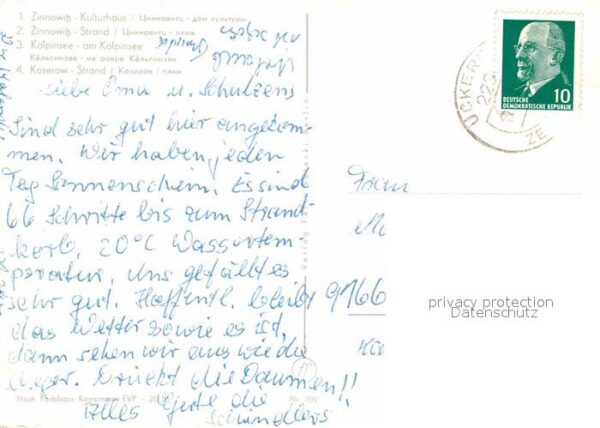 1. Zinnowitz - Kulturhaus / Цинновитц - дом культуры
2. Zinnowitz - Strand / Цинновитц - пляж
3. Kölpinsee - am Kölpinsee
Кёльпинзее - на озере Кёльпинзее
4. Koserow - Strand / Козеров / пляж
Liebe Oma u. Schulzens
Sind sehr gut hier angekom-
men. Wir haben jeden
Tag Sonnenschein. Es sind
66 Schritte bis zum Strand-
korb. 20°C Wassertem-
peratur. Uns gefällt es
sehr gut. Hoffentl. bleibt
das Wetter so wie es ist,
dann sehen wir aus wie die
Neger. Drückt die Daumen!!
Alles Gute die
Schindlers
Nach Farbfotos Kampmann EVP
Nr. 709
UCKERI
ZE
DEUTSCHE
DEMOKRATISCHE REPUBLIK
10
Frau
9166
privacy protection
Datenschutz